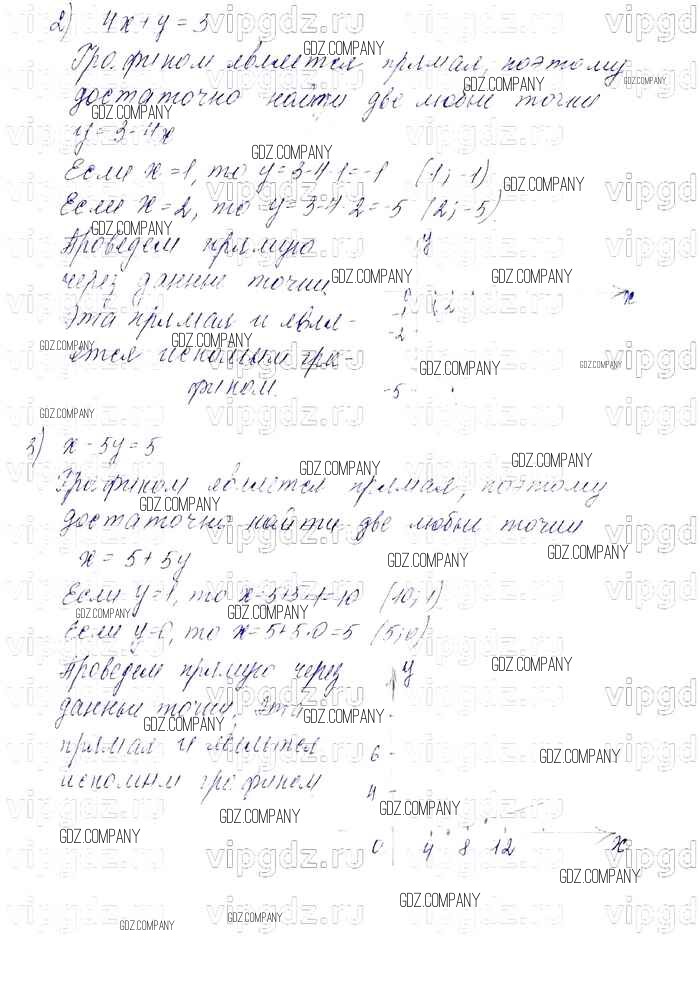 2) 4x + y = 3
Графиком является прямая, поэтому
достаточно найти две любые точки
y = 3 - 4x
Если x = 1, то y = 3 - 4·1 = -1 (1; -1)
Если x = 2, то y = 3 - 4·2 = -5 (2; -5)
Проведем прямую y
через данные точки.
0 1 2 x
Эта прямая и явля-
-2
ется искомым гра-
фиком. -5
3) x - 5y = 5
Графиком является прямая, поэтому
достаточно найти две любые точки
x = 5 + 5y
Если y = 1, то x = 5+5·1 = 10 (10; 1)
Если y = 0, то x = 5+5·0 = 5 (5; 0)
Проведем прямую через y
данные точки. Эта
прямая и является 6
искомым графиком 4
0 4 8 12 x
GDZ.COMPANY
vipgdz.ru